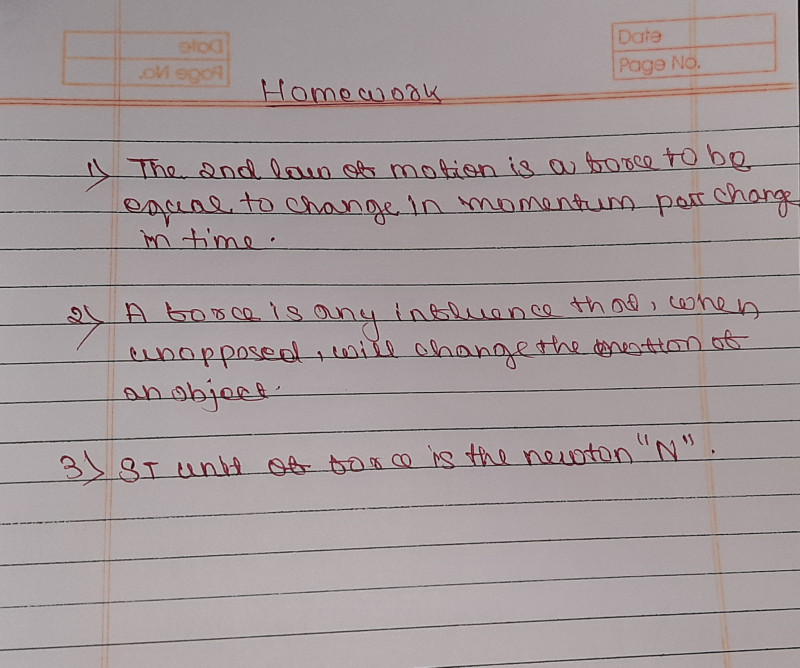 Date
Page No.
Date
Page No.
Homework
1) The 2nd law of motion is a force to be
equal to change in momentum per change
in time.
2) A force is any influence that, when
unopposed, will change the motion of
an object.
3) SI unit of force is the newton "N".